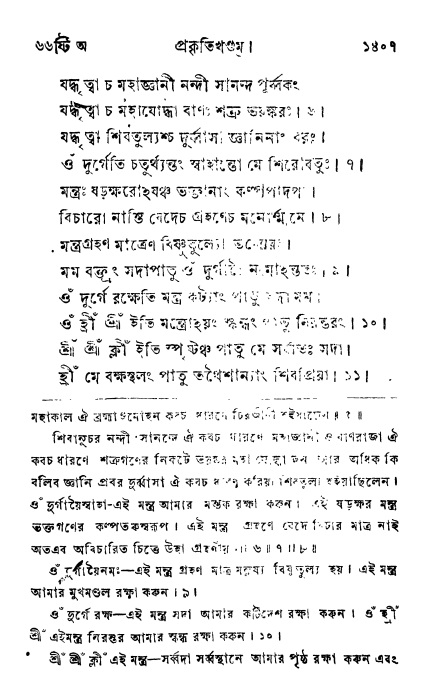 ৬৬ষ্টি অ প্রকৃতিখণ্ডম্। ১৪০৭
যদ্ধৃত্বা চ মহাজ্ঞানী নন্দী সানন্দ পূর্ব্বকং
যদ্ধৃত্বা চ মহাযোদ্ধা বাণঃ শত্রু ভয়ঙ্করঃ। ৬।
যদ্ধৃত্বা শিবতুল্যশ্চ দুর্ব্বাসা জ্ঞানিনাং বরঃ।
ওঁ দুর্গেতি চতুর্থ্যন্তং স্বাহান্তো মে শিরোবতুঃ। ৭।
মন্ত্রঃ ষড়ক্ষরোঽয়ঞ্চ ভক্তানাং কল্পপাদপঃ।
বিচারো নাস্তি বেদেচ গ্রহণেচ মনোর্ম্মুনে। ৮।
মন্ত্রগ্রহণ মাত্রেণ বিষ্ণুতুল্যো
মম বক্তুং সদাপাতু ওঁ দুর্গায়ৈ নমোঽন্ততঃ। ৯।
ওঁ দুর্গে রক্ষেতি মন্ত্র কট্যাং পাতু সদা মম।
ওঁ হ্রীঁ শ্রীঁ ইতি মন্ত্রোঽয়ং স্কন্ধং পাতু নিরন্তরং। ১০।
শ্রীঁ শ্রীঁ ক্লীঁ ইতি স্পৃষ্টঞ্চ পাতু মে সর্ব্বতঃ সদা।
হ্রীঁ মে বক্ষস্থলং পাতু তথৈশান্যাং শিবপ্রিয়া। ১১।
মহাকাল ঐ ব্রহ্মাণ্ডমোহন কবচ ধারণে চিরজীবী হইয়াছেন॥ ৫॥
শিবানুচর নন্দী সানন্দে ঐ কবচ ধারণে মহাজ্ঞানী ও বাণরাজা ঐ
কবচ ধারণে শত্রুগণের নিকটে ভয়ঙ্কর মহা যোদ্ধা হন আর অধিক কি
বলিব জ্ঞানি প্রবর দুর্ব্বাসা ঐ কবচ ধারণ করিয়া শিবতুল্য হইয়াছিলেন।
ওঁ দুর্গায়ৈস্বাহা-এই মন্ত্র আমার মস্তক রক্ষা করুন। এই ষড়ক্ষর মন্ত্র
ভক্তগণের কল্পতরুস্বরূপ। এই মন্ত্র গ্রহণে বেদে বিচার মাত্র নাই
অতএব অবিচারিত চিত্তে উহা গ্রহণীয় ৬॥ ৭॥ ৮॥
ওঁ দুর্গায়ৈনমঃ—এই মন্ত্র গ্রহণ মাত্র মনুষ্য বিষ্ণুতুল্য হয়। এই মন্ত্র
আমার মুখমণ্ডল রক্ষা করুন। ৯।
ওঁ দুর্গে রক্ষ—এই মন্ত্র সদা আমার কটিদেশ রক্ষা করুন। ওঁ হ্রীঁ
শ্রীঁ এইমন্ত্র নিরন্তর আমার স্কন্ধ রক্ষা করুন। ১০।
শ্রীঁ শ্রীঁ ক্লীঁ এই মন্ত্র—সর্ব্বদা সর্ব্বস্থানে আমার পৃষ্ঠ রক্ষা করুন এবং